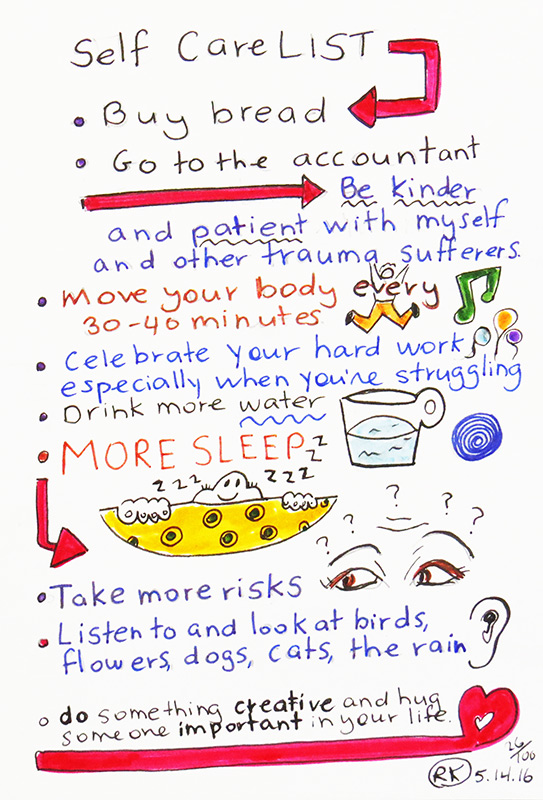 Self Care LIST
• Buy bread
• Go to the accountant
Be kinder
and patient with myself
and other trauma sufferers.
• Move your body every
30-40 minutes
• Celebrate your hard work,
especially when you're struggling
• Drink more water
• MORE SLEEP z z
z z z z z z
? ? ? ? ?
• Take more risks
• Listen to and look at birds,
flowers, dogs, cats, the rain
o do something creative and hug
someone important in your life.
26/100
RK 5.14.16